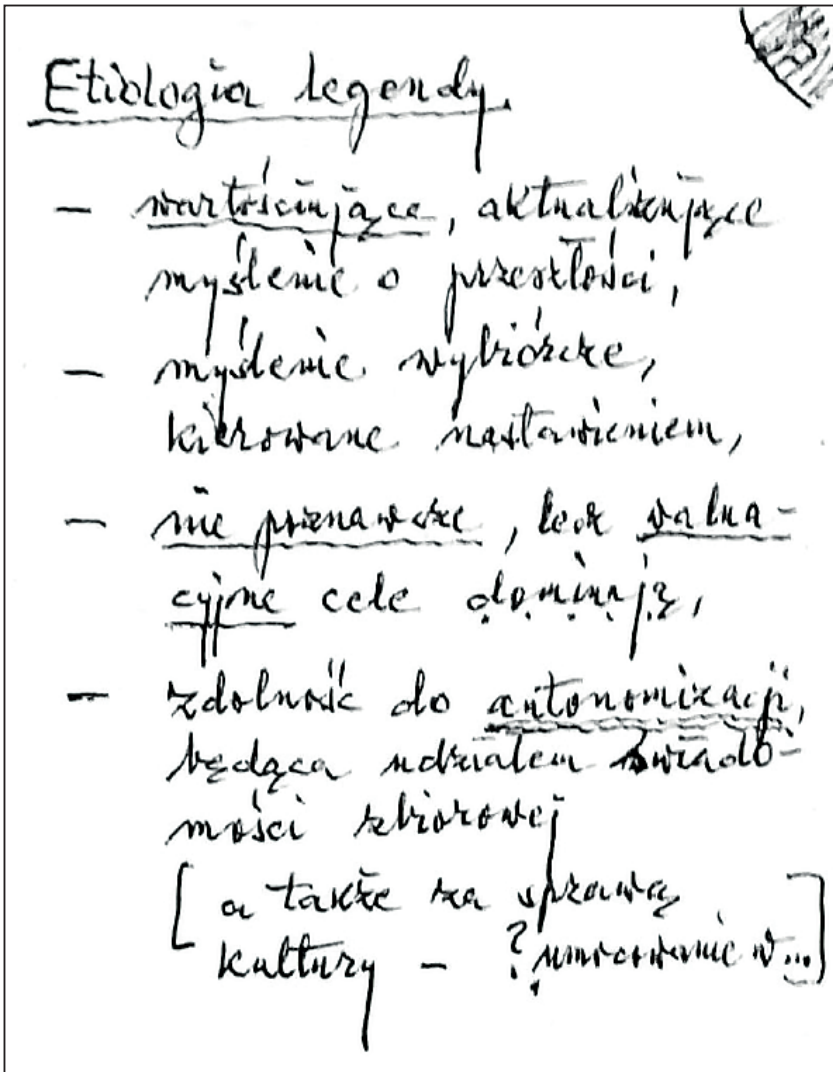 Etiologia legendy.
– wartościujące, aktualizujące
myślenie o przeszłości,
– myślenie wybiórcze,
kierowane nastawieniem,
– nie poznawcze, lecz walua-
cyjne cele dominują,
– zdolność do autonomizacji,
będąca udziałem świado-
mości zbiorowej
[a także za sprawą
kultury – ? umocowanie w...]